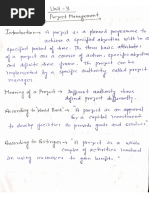 Unit - II
Project Management
Introduction → A project is a planned programme to
achieve a specified objective with in a
specified period of time. The three basic attributes
of a project are a course of action, specific objective
and definite time frame. The project can be
implemented by a specific authority called project
manager.
Meaning of a Project → Different authority times
defined project differently.
According to "World Bank" → "A project as an approval
for a capital investment
to develop facilities to provide goods and services"
According to Gittinger → "A project is a whole
complex of activities involved
in using resources to gain benefits."